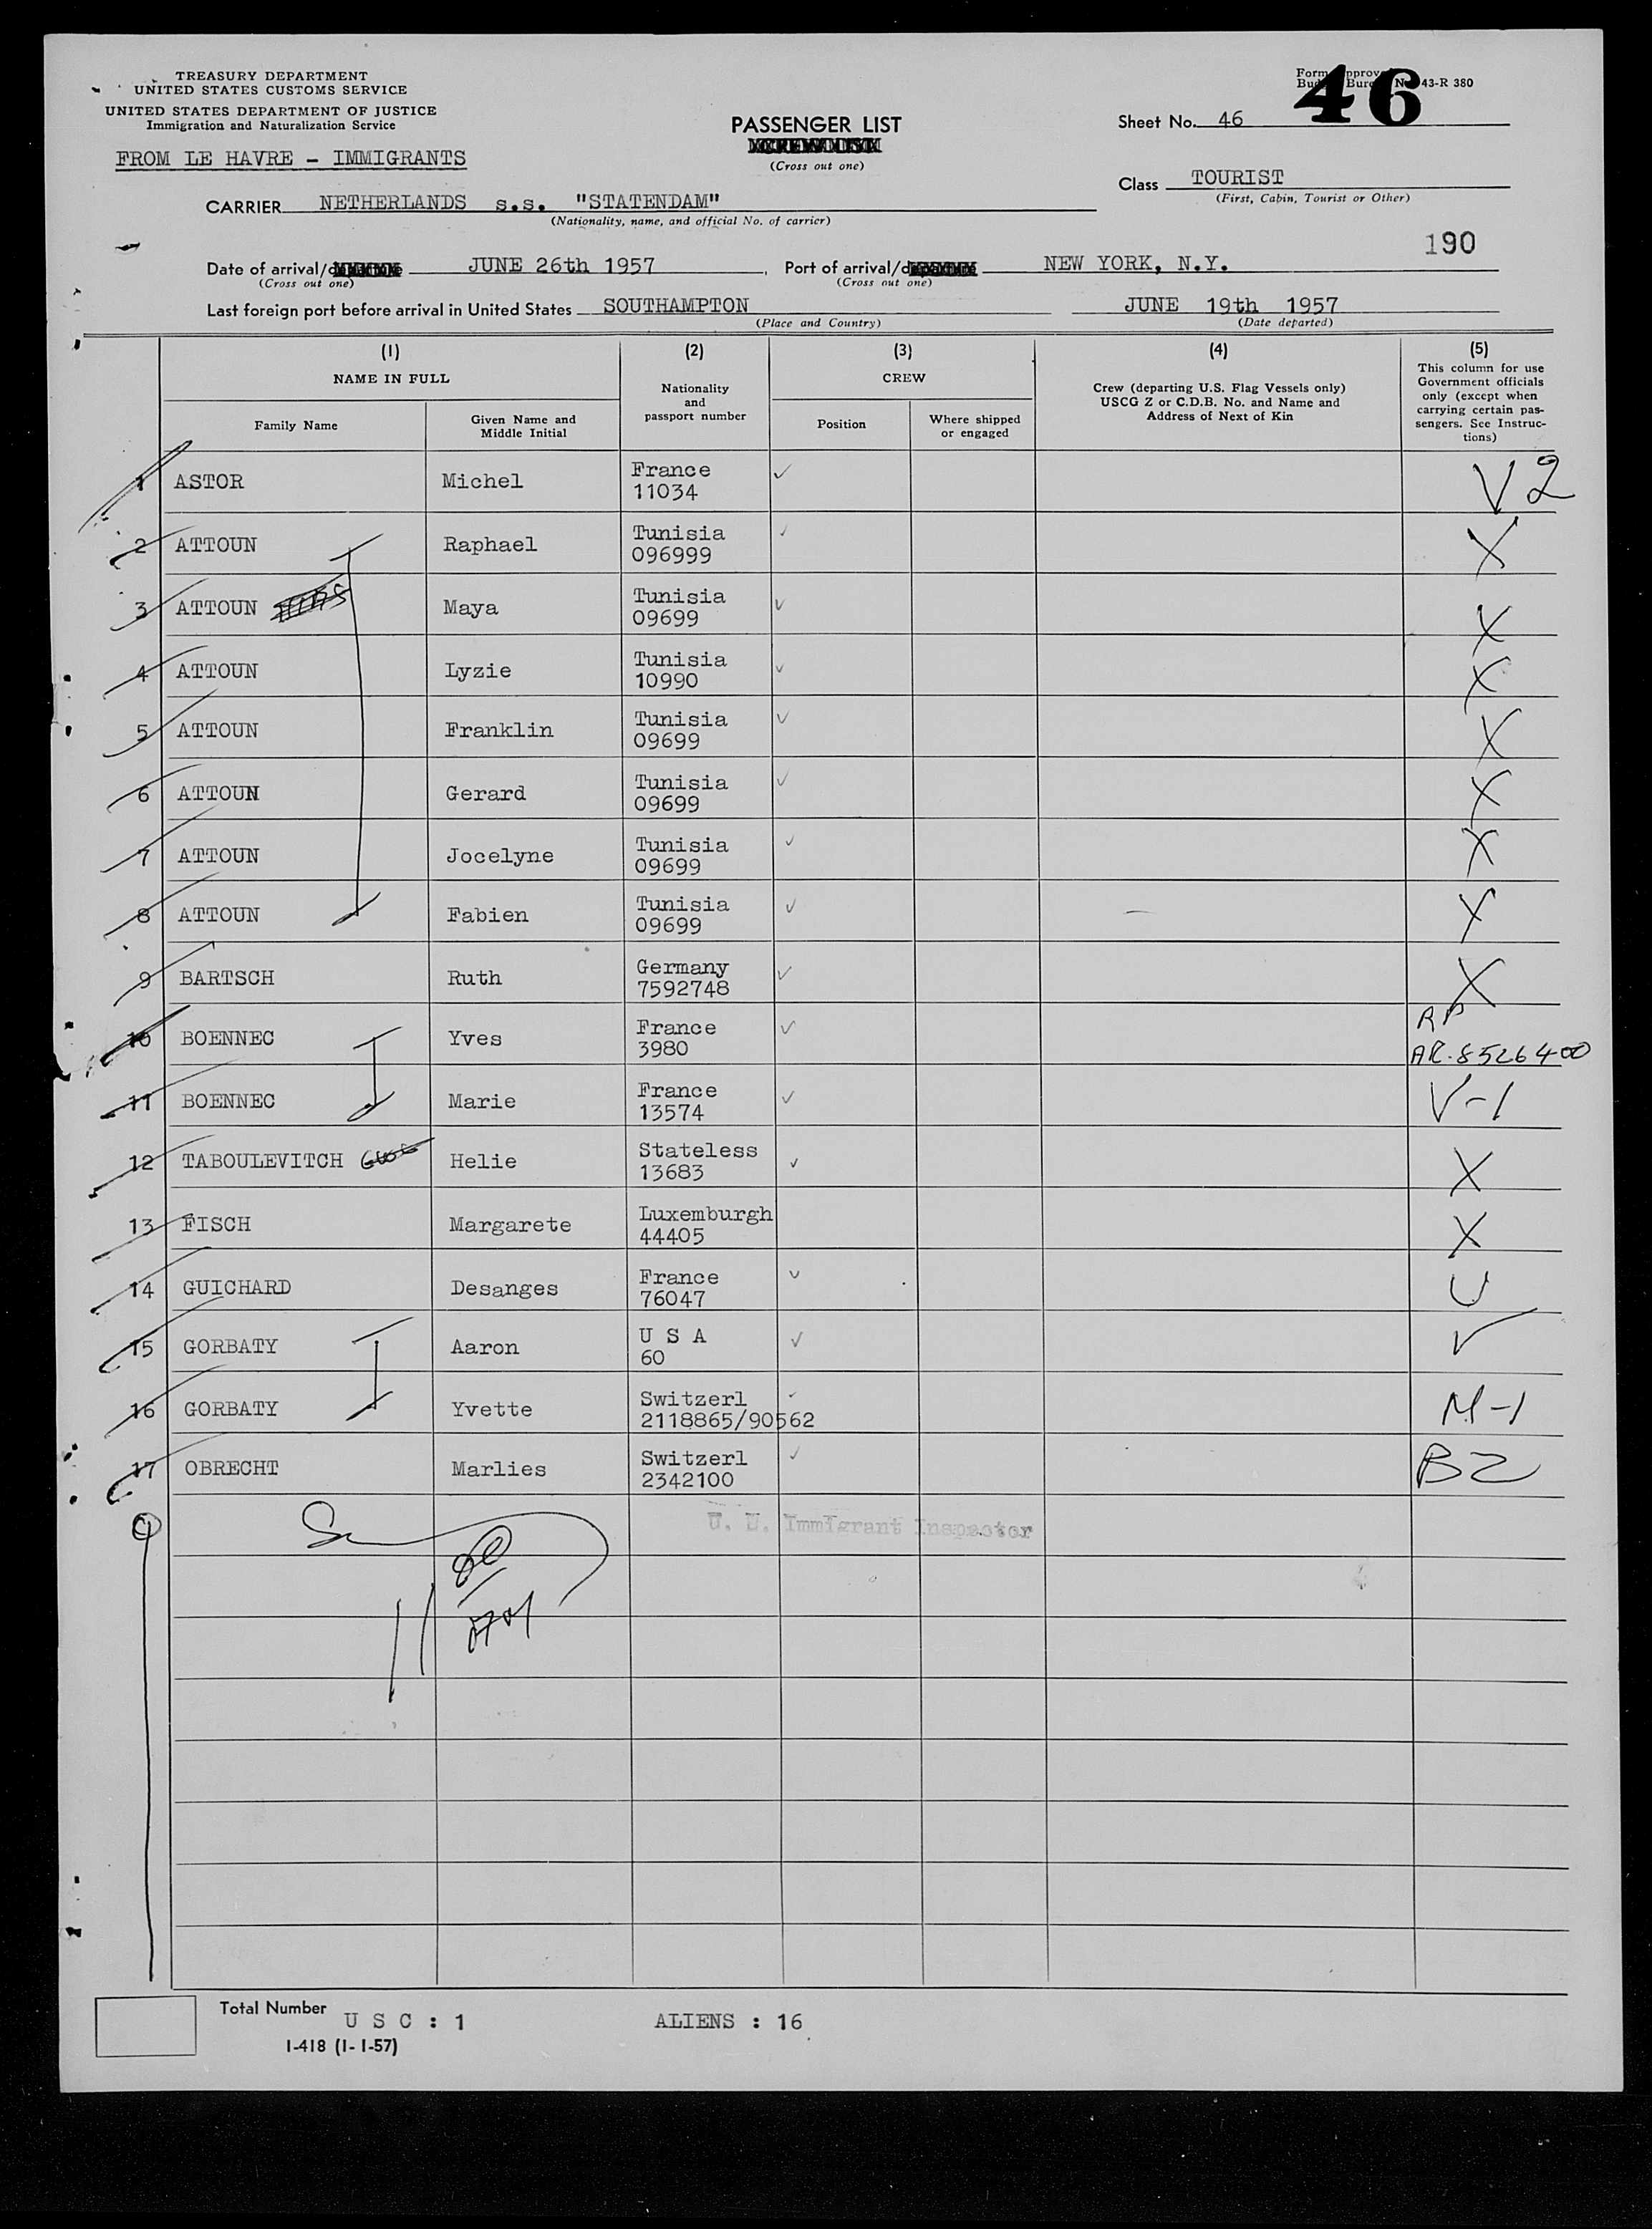 TREASURY DEPARTMENT
UNITED STATES CUSTOMS SERVICE
UNITED STATES DEPARTMENT OF JUSTICE
Immigration and Naturalization Service
FROM LE HAVRE - IMMIGRANTS
PASSENGER LIST
(Cross out one)
Form Approved
43-R 380
46
Sheet No. 46
Class TOURIST
(First, Cabin, Tourist or Other)
CARRIER NETHERLANDS s.s. "STATENDAM"
(Nationality, name, and official No. of carrier)
190
Date of arrival/departure JUNE 26th 1957, Port of arrival/departure NEW YORK, N.Y.
(Cross out one) (Cross out one)
Last foreign port before arrival in United States SOUTHAMPTON JUNE 19th 1957
(Place and Country) (Date departed)
(1) (2) (3) (4) (5)
NAME IN FULL
Family Name
Given Name and Middle Initial
Nationality and passport number
CREW
Position
Where shipped or engaged
Crew (departing U.S. Flag Vessels only)
USCG Z or C.D.B. No. and Name and
Address of Next of Kin
This column for use
Government officials
only (except when
carrying certain pas-
sengers. See Instruc-
tions)
1 ASTOR Michel France 11034 ✓ V2
2 ATTOUN Raphael Tunisia 096999 ✓ X
3 ATTOUN Maya Tunisia 09699 ✓ X
4 ATTOUN Lyzie Tunisia 10990 ✓ X
5 ATTOUN Franklin Tunisia 09699 ✓ X
6 ATTOUN Gerard Tunisia 09699 ✓ X
7 ATTOUN Jocelyne Tunisia 09699 ✓ X
8 ATTOUN Fabien Tunisia 09699 ✓ X
9 BARTSCH Ruth Germany 7592748 ✓ X
10 BOENNEC Yves France 3980 ✓ RP AR-8526400
11 BOENNEC Marie France 13574 ✓ V-1
12 TABOULEVITCH Helie Stateless 13683 ✓ X
13 FISCH Margarete Luxemburgh 44405 X
14 GUICHARD Desanges France 76047 ✓ U
15 GORBATY Aaron U S A 60 ✓ ✓
16 GORBATY Yvette Switzerl 2118865/90562 ✓ M-1
17 OBRECHT Marlies Switzerl 2342100 ✓ B2
Immigrant Inspector
Total Number U S C : 1 ALIENS : 16
I-418 (1-1-57)